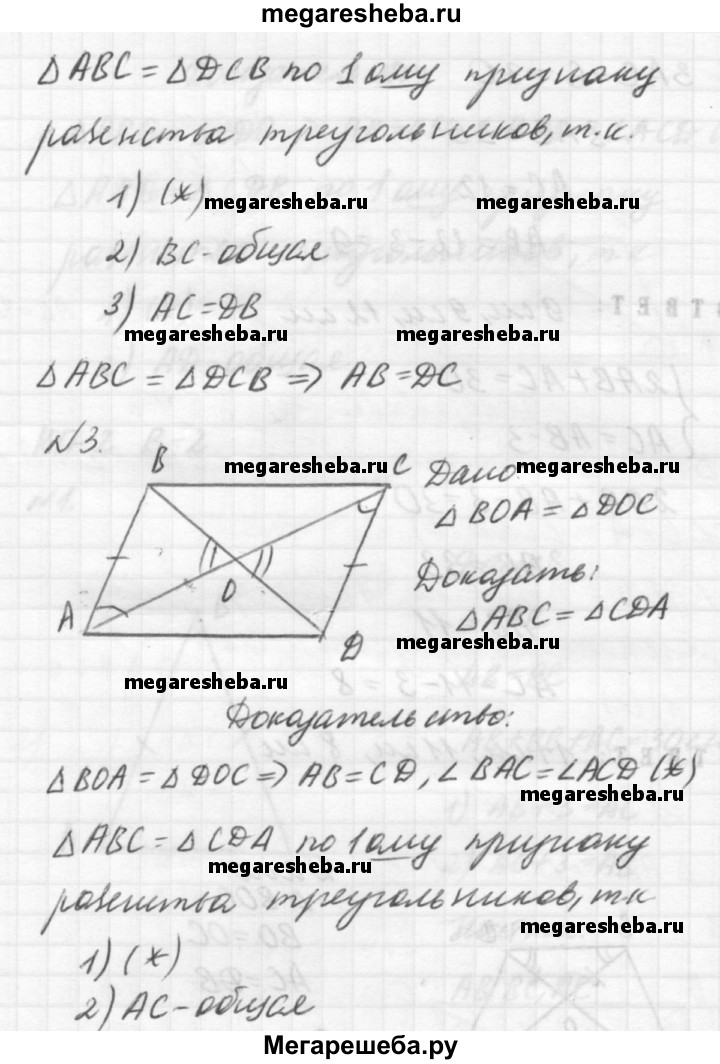 megaresheba.ru
△ABC = △DCB по 1ому признаку
равенства треугольников, т.к.
1) (*)
megaresheba.ru megaresheba.ru
2) BC-общая
3) AC=DB
megaresheba.ru megaresheba.ru
△ABC = △DCB => AB=DC
№3.
B C
megaresheba.ru megaresheba.ru
Дано:
△BOA = △DOC
O
Доказать:
△ABC = △CDA
A D
megaresheba.ru
megaresheba.ru
Доказательство:
△BOA = △DOC => AB=CD, ∠BAC=∠ACD (*)
megaresheba.ru
△ABC = △CDA по 1ому признаку
megaresheba.ru
равенства треугольников, т.к
1) (*)
2) AC-общая
Мегарешеба.ру